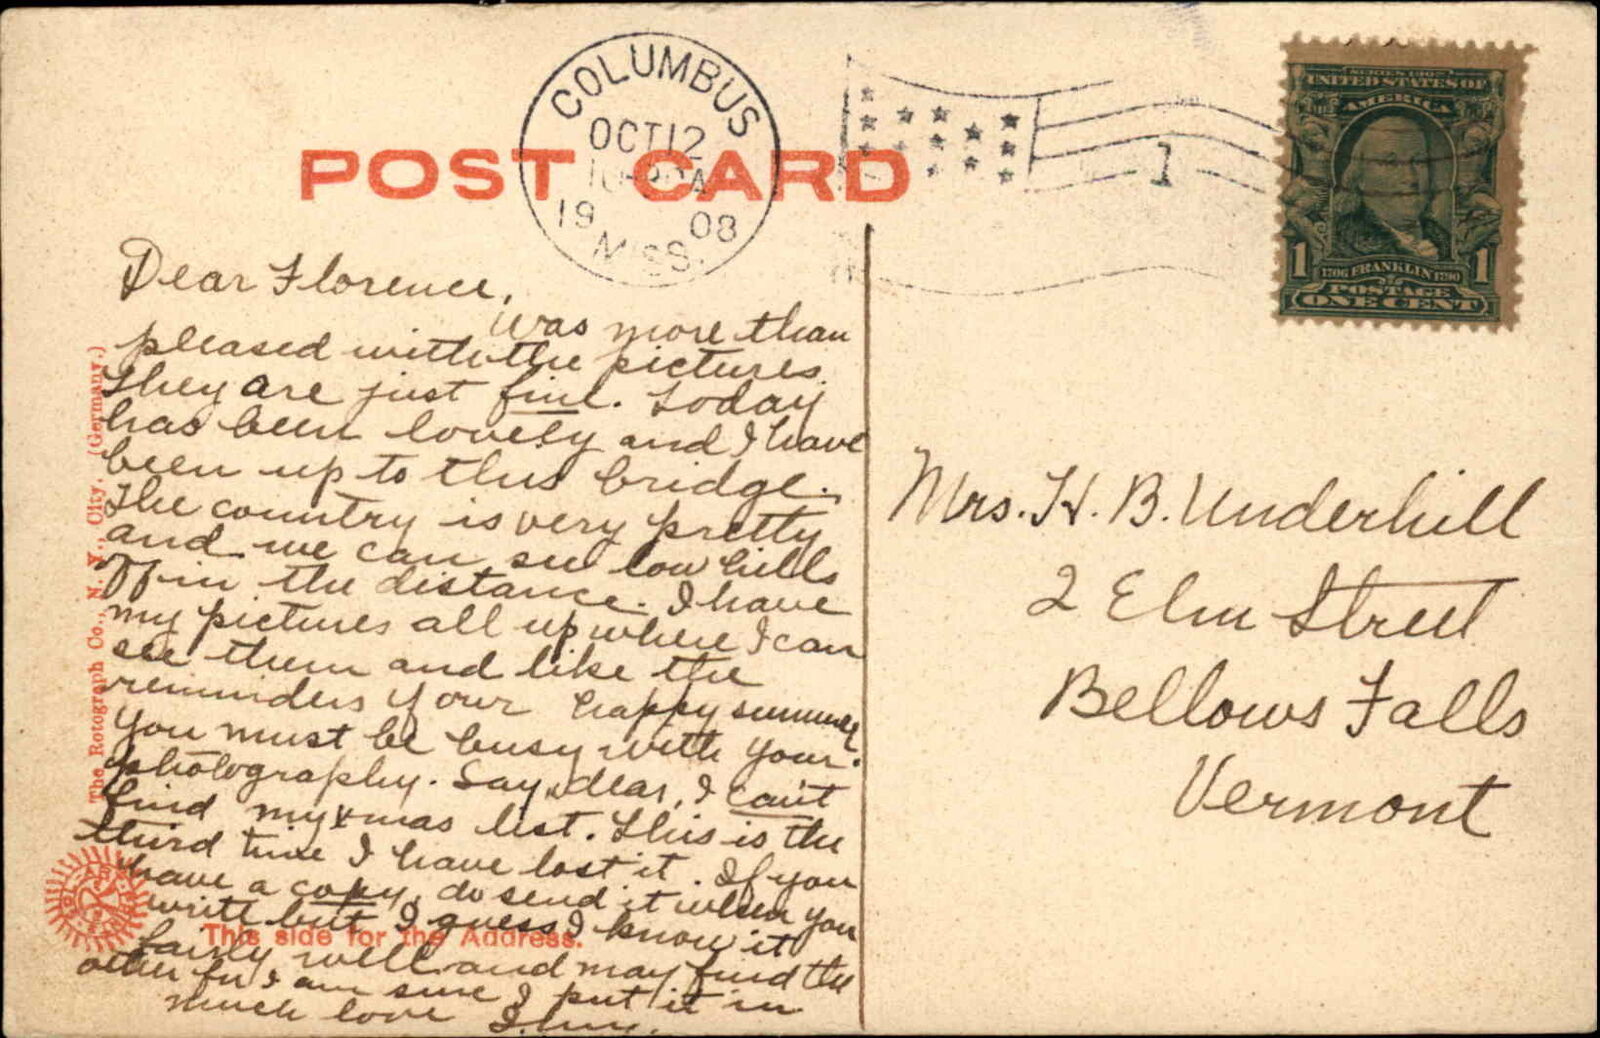 POST CARD
COLUMBUS
OCT 12
19 08
MISS.
1
SERIES 1902
UNITED STATES OF
AMERICA
1 1706 FRANKLIN 1790 1
POSTAGE
ONE CENT
Dear Florence,
Was more than
pleased with the pictures.
They are just fine. Today
has been lovely and I have
been up to this bridge.
The country is very pretty
and we can see low hills
off in the distance. I have
my pictures all up where I can
see them and like the
reminders of our happy summer
You must be busy with your
photography. Say, dear, I can't
find my xmas list. This is the
third time I have lost it. If you
have a copy, do send it when you
write but I guess I know it
fairly well and may find the
other for I am sure I put it in
much love
The Rotograph Co., N. Y. City. (Germany.)
This side for the Address.
Mrs. H. B. Underhill
2 Elm Street
Bellows Falls
Vermont